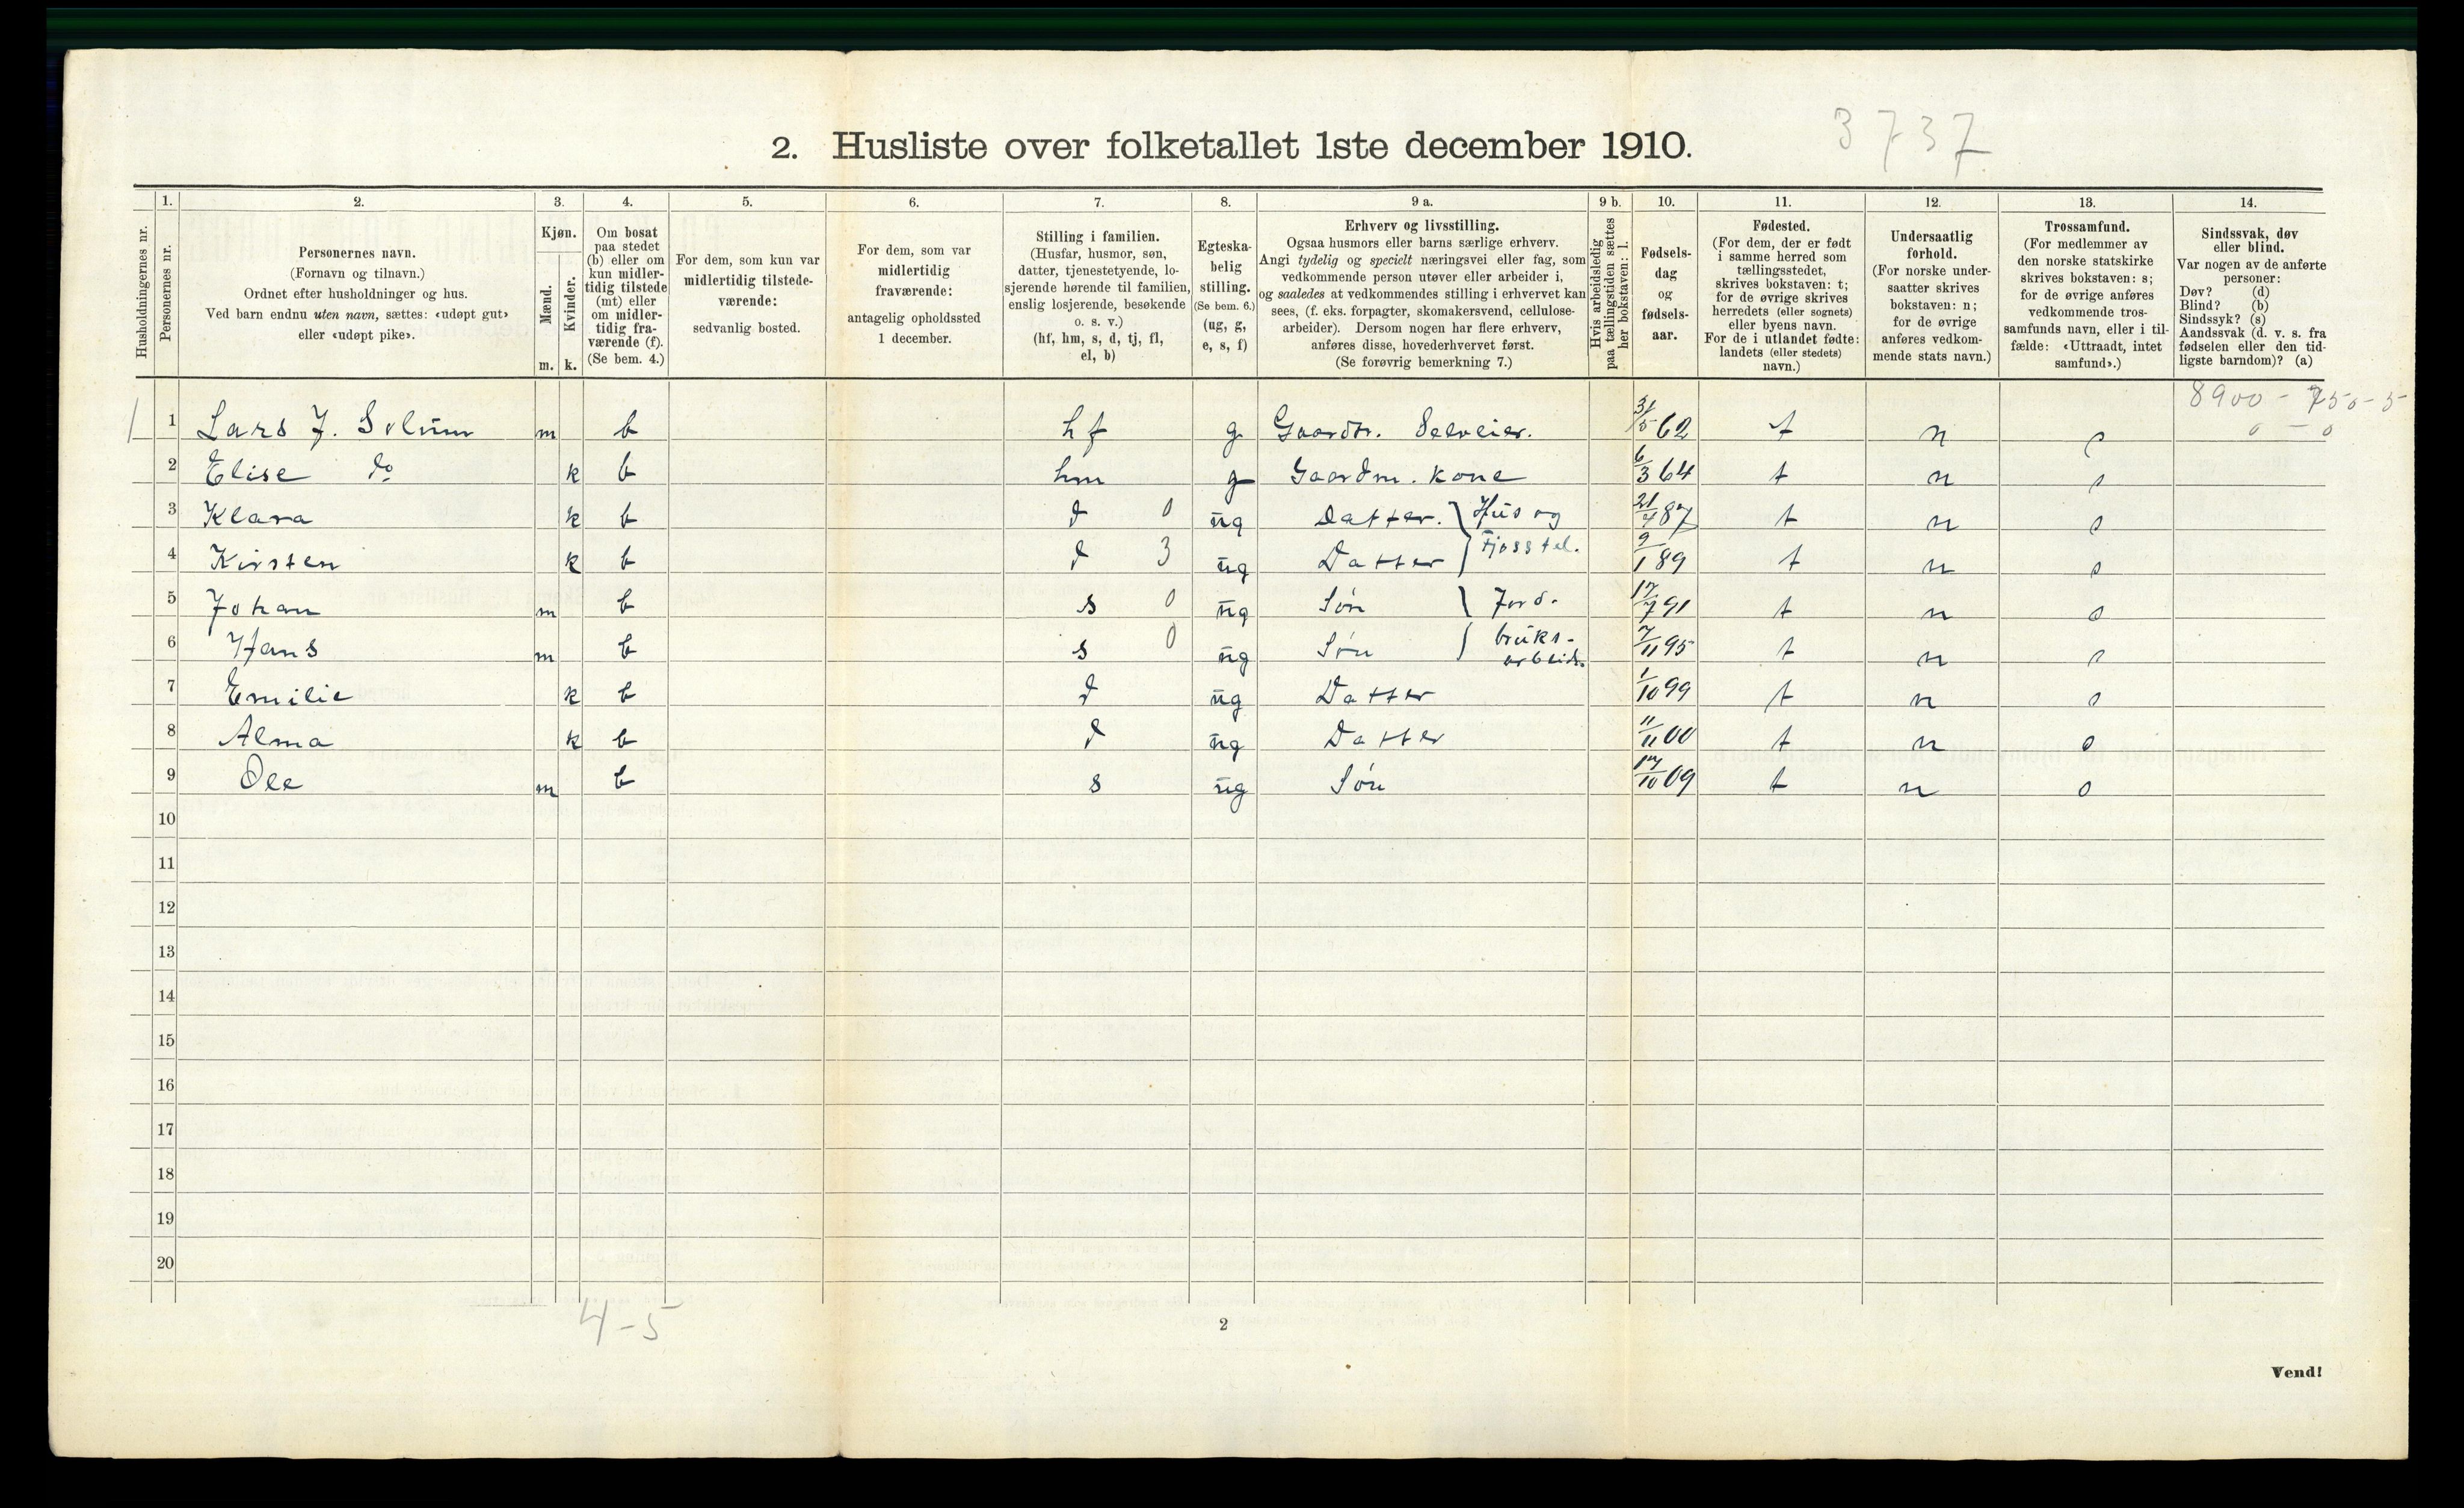 3737
2. Husliste over folketallet 1ste december 1910.
Husholdningernes nr.
1.
Personernes nr.
2.
Personernes navn.
(Fornavn og tilnavn.)
Ordnet efter husholdninger og hus.
Ved barn endnu uten navn, sættes: «udøpt gut»
eller «udøpt pike».
3.
Kjøn.
Mænd.
m.
Kvinder.
k.
4.
Om bosat
paa stedet
(b) eller om
kun midler-
tidig tilstede
(mt) eller
om midler-
tidig fra-
værende (f).
(Se bem. 4.)
5.
For dem, som kun var
midlertidig tilstede-
værende:
sedvanlig bosted.
6.
For dem, som var
midlertidig
fraværende:
antagelig opholdssted
1 december.
7.
Stilling i familien.
(Husfar, husmor, søn,
datter, tjenestetyende, lo-
sjerende hørende til familien,
enslig losjerende, besøkende
o. s. v.)
(hf, hm, s, d, tj, fl,
el, b)
8.
Egteska-
belig
stilling.
(Se bem. 6.)
(ug, g,
e, s, f)
9 a.
Erhverv og livsstilling.
Ogsaa husmors eller barns særlige erhverv.
Angi tydelig og specielt næringsvei eller fag, som
vedkommende person utøver eller arbeider i,
og saaledes at vedkommendes stilling i erhvervet kan
sees, (f. eks. forpagter, skomakersvend, cellulose-
arbeider). Dersom nogen har flere erhverv,
anføres disse, hovederhvervet først.
(Se forøvrig bemerkning 7.)
9 b.
Hvis arbeidsledig
paa tællingstiden sættes
her bokstaven: l.
10.
Fødsels-
dag
og
fødsels-
aar.
11.
Fødested.
(For dem, der er født
i samme herred som
tællingsstedet,
skrives bokstaven: t;
for de øvrige skrives
herredets (eller sognets)
eller byens navn.
For de i utlandet fødte:
landets (eller stedets)
navn.)
12.
Undersaatlig
forhold.
(For norske under-
saatter skrives
bokstaven: n;
for de øvrige
anføres vedkom-
mende stats navn.)
13.
Trossamfund.
(For medlemmer av
den norske statskirke
skrives bokstaven: s;
for de øvrige anføres
vedkommende tros-
samfunds navn, eller i til-
fælde: «Uttraadt, intet
samfund».)
14.
Sindssvak, døv
eller blind.
Var nogen av de anførte
personer:
Døv? (d)
Blind? (b)
Sindssyk? (s)
Aandssvak (d. v. s. fra
fødselen eller den tid-
ligste barndom)? (a)
8900 - 750-5
0 - 0
1 1 Lars J. Solum m b hf g Gaardbr. Selveier. 31/5 62 t n s
2 Elise do k b hm g Gaardm. kone 6/3 64 t n s
3 Klara k b d 0 ug Datter. } Hus og 21/4 87 t n s
4 Kirsten k b d 3 ug Datter Fjosstel. 9/1 89 t n s
5 Johan m b s 0 ug Søn } Jord- 17/7 91 t n s
6 Hans m b s 0 ug Søn bruks- arbeid. 7/11 95 t n s
7 Emilie k b d ug Datter 1/10 99 t n s
8 Alma k b d ug Datter 11/11 00 t n s
9 Ole m b s ug Søn 17/10 09 t n s
10
11
12
13
14
15
16
17
18
19
20
4-5
2
Vend!